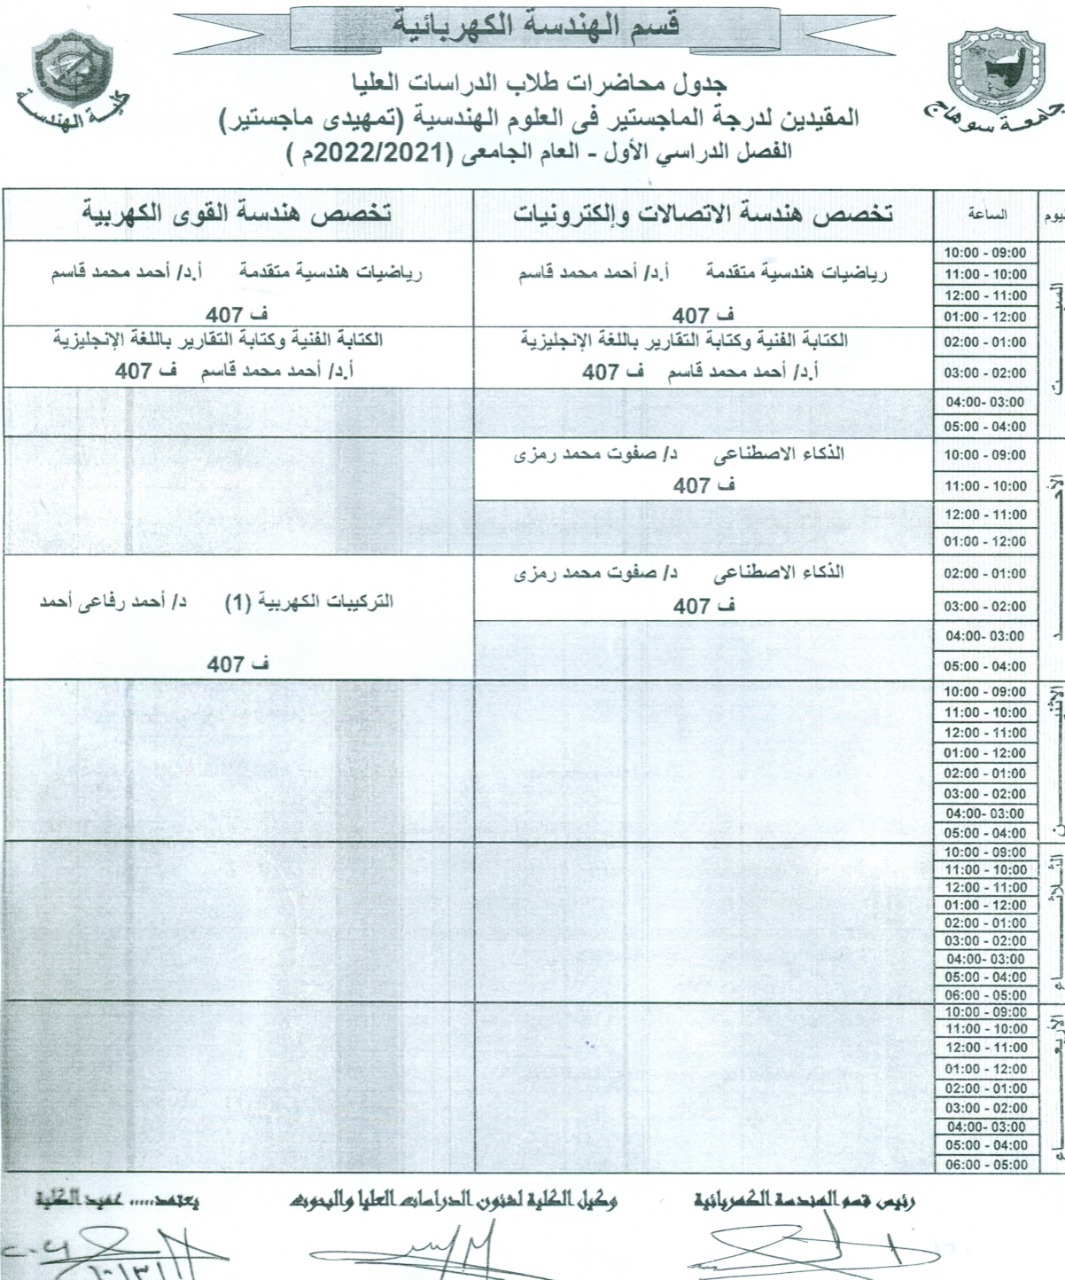 قسم الهندسة الكهربائية
كلية الهندسة
جامعة سوهاج
جدول محاضرات طلاب الدراسات العليا
المقيدين لدرجة الماجستير فى العلوم الهندسية (تمهيدى ماجستير)
الفصل الدراسي الأول - العام الجامعى (2022/2021م )
اليوم
الساعة
تخصص هندسة الاتصالات وإلكترونيات
تخصص هندسة القوى الكهربية
السبت
10:00 - 09:00
11:00 - 10:00
12:00 - 11:00
01:00 - 12:00
رياضيات هندسية متقدمة أ.د/ أحمد محمد قاسم
ف 407
رياضيات هندسية متقدمة أ.د/ أحمد محمد قاسم
ف 407
02:00 - 01:00
03:00 - 02:00
الكتابة الفنية وكتابة التقارير باللغة الإنجليزية
أ.د/ أحمد محمد قاسم ف 407
الكتابة الفنية وكتابة التقارير باللغة الإنجليزية
أ.د/ أحمد محمد قاسم ف 407
04:00- 03:00
05:00 - 04:00
الأحد
10:00 - 09:00
11:00 - 10:00
الذكاء الاصطناعى د/ صفوت محمد رمزى
ف 407
12:00 - 11:00
01:00 - 12:00
02:00 - 01:00
03:00 - 02:00
الذكاء الاصطناعى د/ صفوت محمد رمزى
ف 407
التركيبات الكهربية (1) د/ أحمد رفاعى أحمد
ف 407
04:00- 03:00
05:00 - 04:00
الاثنين
10:00 - 09:00
11:00 - 10:00
12:00 - 11:00
01:00 - 12:00
02:00 - 01:00
03:00 - 02:00
04:00- 03:00
05:00 - 04:00
الثلاثاء
10:00 - 09:00
11:00 - 10:00
12:00 - 11:00
01:00 - 12:00
02:00 - 01:00
03:00 - 02:00
04:00- 03:00
05:00 - 04:00
06:00 - 05:00
الأربعاء
10:00 - 09:00
11:00 - 10:00
12:00 - 11:00
01:00 - 12:00
02:00 - 01:00
03:00 - 02:00
04:00- 03:00
05:00 - 04:00
06:00 - 05:00
رئيس قسم الهندسة الكهربائية
وكيل الكلية لشئون الدراسات العليا والبحوث
يعتمد..... عميد الكلية